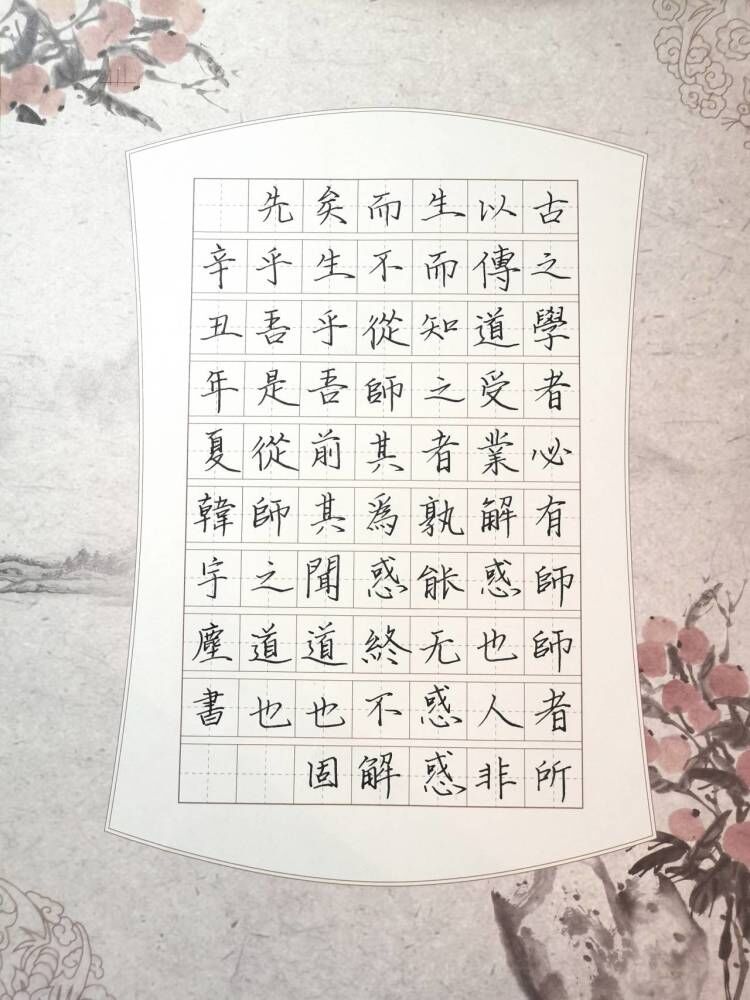 古之學者必有師師者所
以傳道受業解惑也人非
生而知之者孰能无惑惑
而不從師其爲惑終不解
矣生乎吾前其聞道也固
先乎吾是從師之道也
辛丑年夏韓宇塵書